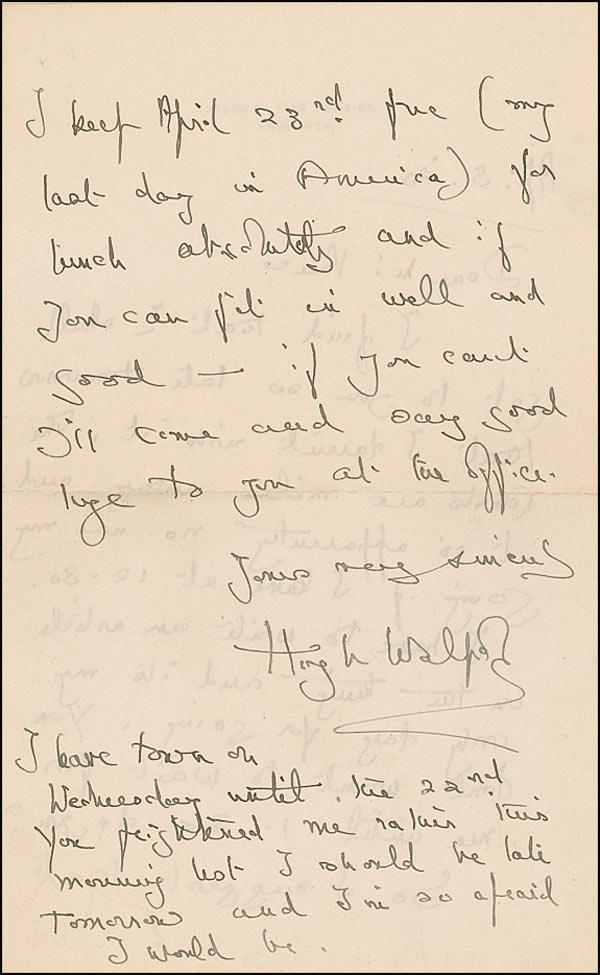 I keep April 23rd free (my
last day in America) for
lunch absolutely and if
you can fit in well and
good — if you can't
I'll come and say good
bye to you at the office.
Yours very sincerely
Hugh Walpole
I leave town on
Wednesday until the 22nd.
You frightened me rather this
morning lest I should be late
tomorrow and I'm so afraid
I would be.